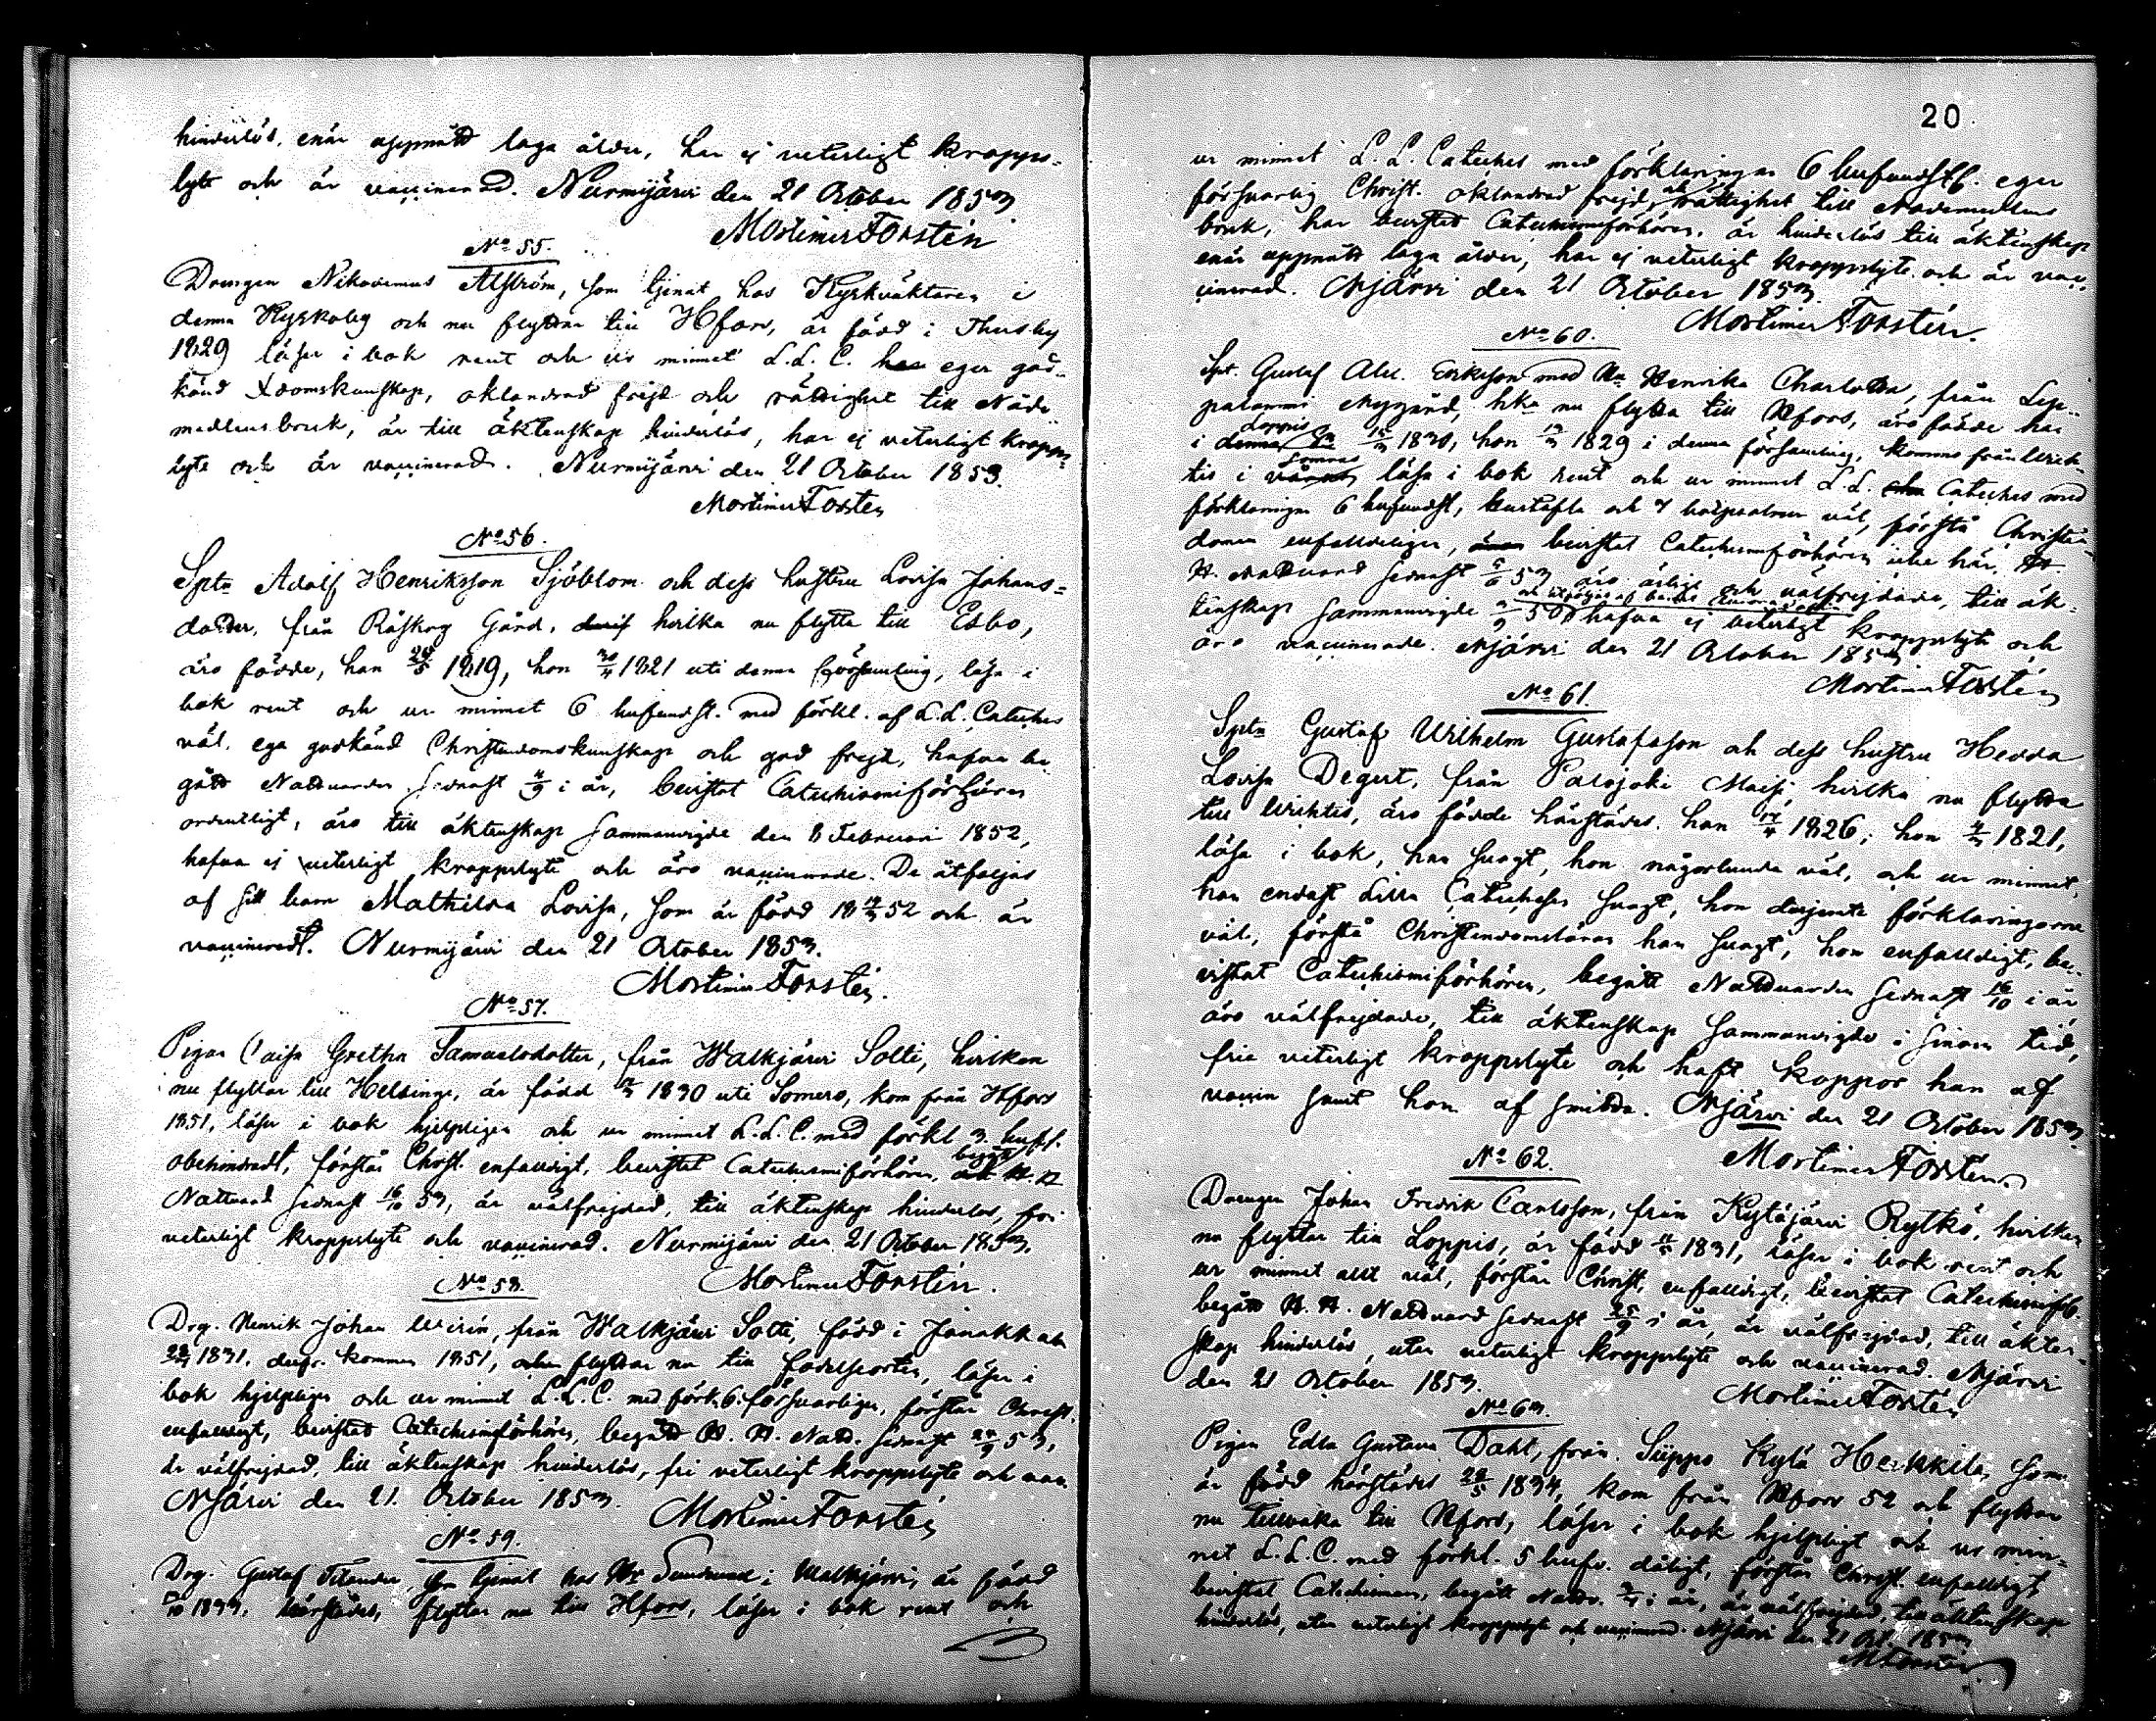 hinderlös, enär uppnått laga ålder, har ej veterligt kropps-
lyte och är vaccinerad. Nurmijärvi den 21 October 1853
Mortimer Forstén
No 55.
Drengen Nikodemus Alström, som tjenat hos Kyrkväktaren i
denna Kyrkoby och nu flyttar till Hfors, är född i Thusby
1829 läser i bok rent och ur minnet L.L.C. eger god-
känd Xdomskunskap, oklandrad frejd och rättighet till Nåde
medlens bruk, är till äktenskap hinderlös, har ej veterligt kropps-
lyte och är vaccinerad. Nurmijärvi den 21 October 1853.
Mortimer Forstén
No 56.
Sptn Adolf Henriksson Sjöblom och dess hustru Lovisa Johans-
dotter, från Råskog Gård, hvilka nu flytta till Esbo,
äro födde, han 1819, hon 1821 uti denna församling, läsa i
bok rent och ur minnet 6 hufvudst. med förkl. af L.L. Catches
väl, ega godkänd Christendomskunskap och god frejd, hafva be
gått Nattvarden sednast i år, bevistat Catechismiförhören
ordentligt, äro till äktenskap sammanvigde den 8 Februari 1852,
hafva ej veterligt kroppslyte och äro vaccinerade. De åtföljas
af sitt barn Mathilda Lovisa, som är född 18 52 och är
vaccineradt. Nurmijärvi den 21 October 1853.
Mortimer Forstén.
No 57.
Pigan Caisa Gretha Samuelsdotter, från Walkjärvi Solti, hvilken
nu flyttar till Helsinge, är född 1830 uti Somero, kom från Hfors
1851, läser i bok hjelpligen och ur minnet L.L.C. med förkl 3. hufs.
obehindradt, förstår Christ. enfaldigt, bevistat Catechismiförhören, begått H. H.
Nattvard sednast 16/10 53, är välfrejdad, till äktenskap hinderlös, fri
veterligt kroppslyte och vaccinerad. Nurmijärvi den 21 October 1853.
No 58. Mortimer Forstén.
Drg. Henrik Johan Wirén, från Walkjärvi Solti, född i Janakkala
1831, kommen 1851, och flyttar nu till födelseorten, läser i
bok hjelpligen och ur minnet L.L.C. med förk. 6. försvarligen, förstår Christ.
enfaldigt, bevistat Catechismiförhören, begått H. H. Nattv. sednast 53,
är välfrejdad, till äktenskap hinderlös, fri veterligt kroppslyte och vacc.
Njärvi den 21. October 1853. Mortimer Forstén
No 59.
Drg. Gustaf Felander, som tjenat hos i Walkjärvi, är född
1833. härstädes, flyttar nu till Hfors, läser i bok rent och
20
ur minnet L.L. Catches med förklaringar 6 hufvudst. eger
försvarlig Christ. oklandrad frejd, och rättighet till Nådemedlens
bruk, har bevistat Catechismiförhören, är hinderlös till äktenskap
enär uppnått laga ålder, har ej veterligt kroppslyte och är vac-
cinerad. Njärvi den 21 October 1853.
Mortimer Forstén.
No 60.
Spt. Gustaf Alex. Eriksson med Hu Henrika Charlotta, från Lep-
palammi Nygård, hka nu flytta till Hfors, äro födde han
i Loppis 1830, hon 1829 i denna församling, komne från Wich-
tis i somras läsa i bok rent och ur minnet L.L. Catches med
förklaringar 6 hufvudst, hustafla och 7 botpsalmer väl, förstå Christen-
domen enfaldeligen, bevistat Catechismiförhören icke här,
H. Nattvard sednast 53 äro ärlige och välfrejdade, till äk-
tenskap sammanvigde 50, hafva ej veterligt kroppslyte och
äro vaccinerade. Njärvi den 21 October 1853
Mortimer Forstén
No 61.
Sptn Gustaf Wilhelm Gustafsson och dess hustru Hedda
Lovisa Degert, från Palojoki Maisi hvilka nu flytta
till Wichtis, äro födde härstädes. han 1826, hon 1821,
läsa i bok, han svagt, hon någorlunda väl, och ur minnet,
han endast Lilla Catchesen svagt, hon derjemte förklaringarna
väl, förstå Christendomsläran han svagt, hon enfaldigt, be-
vistat Catechismiförhören, begått Nattvarden sednast 16/10 i år
äro välfrejdade, till äktenskap sammanvigde i sinom tid,
frie veterligt kroppslyte och haft koppor han af
vaccin samt hon af smitta. Njärvi den 21 October 1853
No 62. Mortimer Forstén
Drengen Johan Fredrik Carlsson, från Kytäjärvi Rytkö, hvilken
nu flyttar till Loppis, är född 1831, läser i bok rent och
ur minnet allt väl, förstår Christ. enfaldigt, bevistat Catechismif.
begått H. H. Nattvard sednast 25/9 i år, är välfrejdad, till äkten-
skap hinderlös, utan veterligt kroppslyte och vaccinerad. Njärvi
den 21 October 1853. Mortimer Forstén
No 63.
Pigan Edla Gustava Dahl, från Seppo Kylä Heikkilä, som
är född härstädes 1834, kom från Hfors 52 och flyttar
nu tillbaka till Hfors, läser i bok hjelpligt och ur min-
net L.L.C. med förkl. 5 hufv. dåligt, förstår Christ. enfaldigt
bevistat Catechismen, begått Nattv. i år, är välfrejdad, till äktenskap
hinderlös, utan veterligt kroppslyte och vaccinerad. Njärvi den 21 Oct. 1853
MForstén